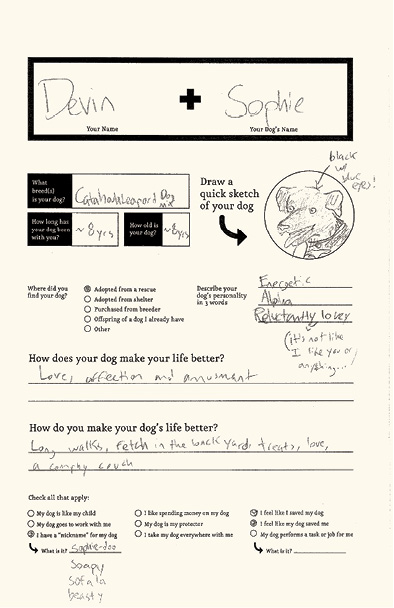 Devin + Sophie
Your Name
Your Dog's Name
What breed(s) is your dog?
Catahoula Leopard Dog mix
How long has your dog been with you?
~8 yrs
How old is your dog?
~8 yrs
Draw a
quick sketch
of your dog
black
w/
blue
eyes!
Where did you
find your dog?
Adopted from a rescue
Adopted from shelter
Purchased from breeder
Offspring of a dog I already have
Other
Describe your
dog's personality
in 3 words
Energetic
Alpha
Reluctantly lover
(it's not like
I like you or
anything...)
How does your dog make your life better?
Love, affection and amusmant
How do you make your dog's life better?
Long walks, fetch in the back yard, treats, love,
a comphy couch
Check all that apply:
My dog is like my child
My dog goes to work with me
I have a "nickname" for my dog
What is it? Sophie-doo
Soapy
Sofala
beasty
I like spending money on my dog
My dog is my protector
I take my dog everywhere with me
I feel like I saved my dog
I feel like my dog saved me
My dog performs a task or job for me
What is it?